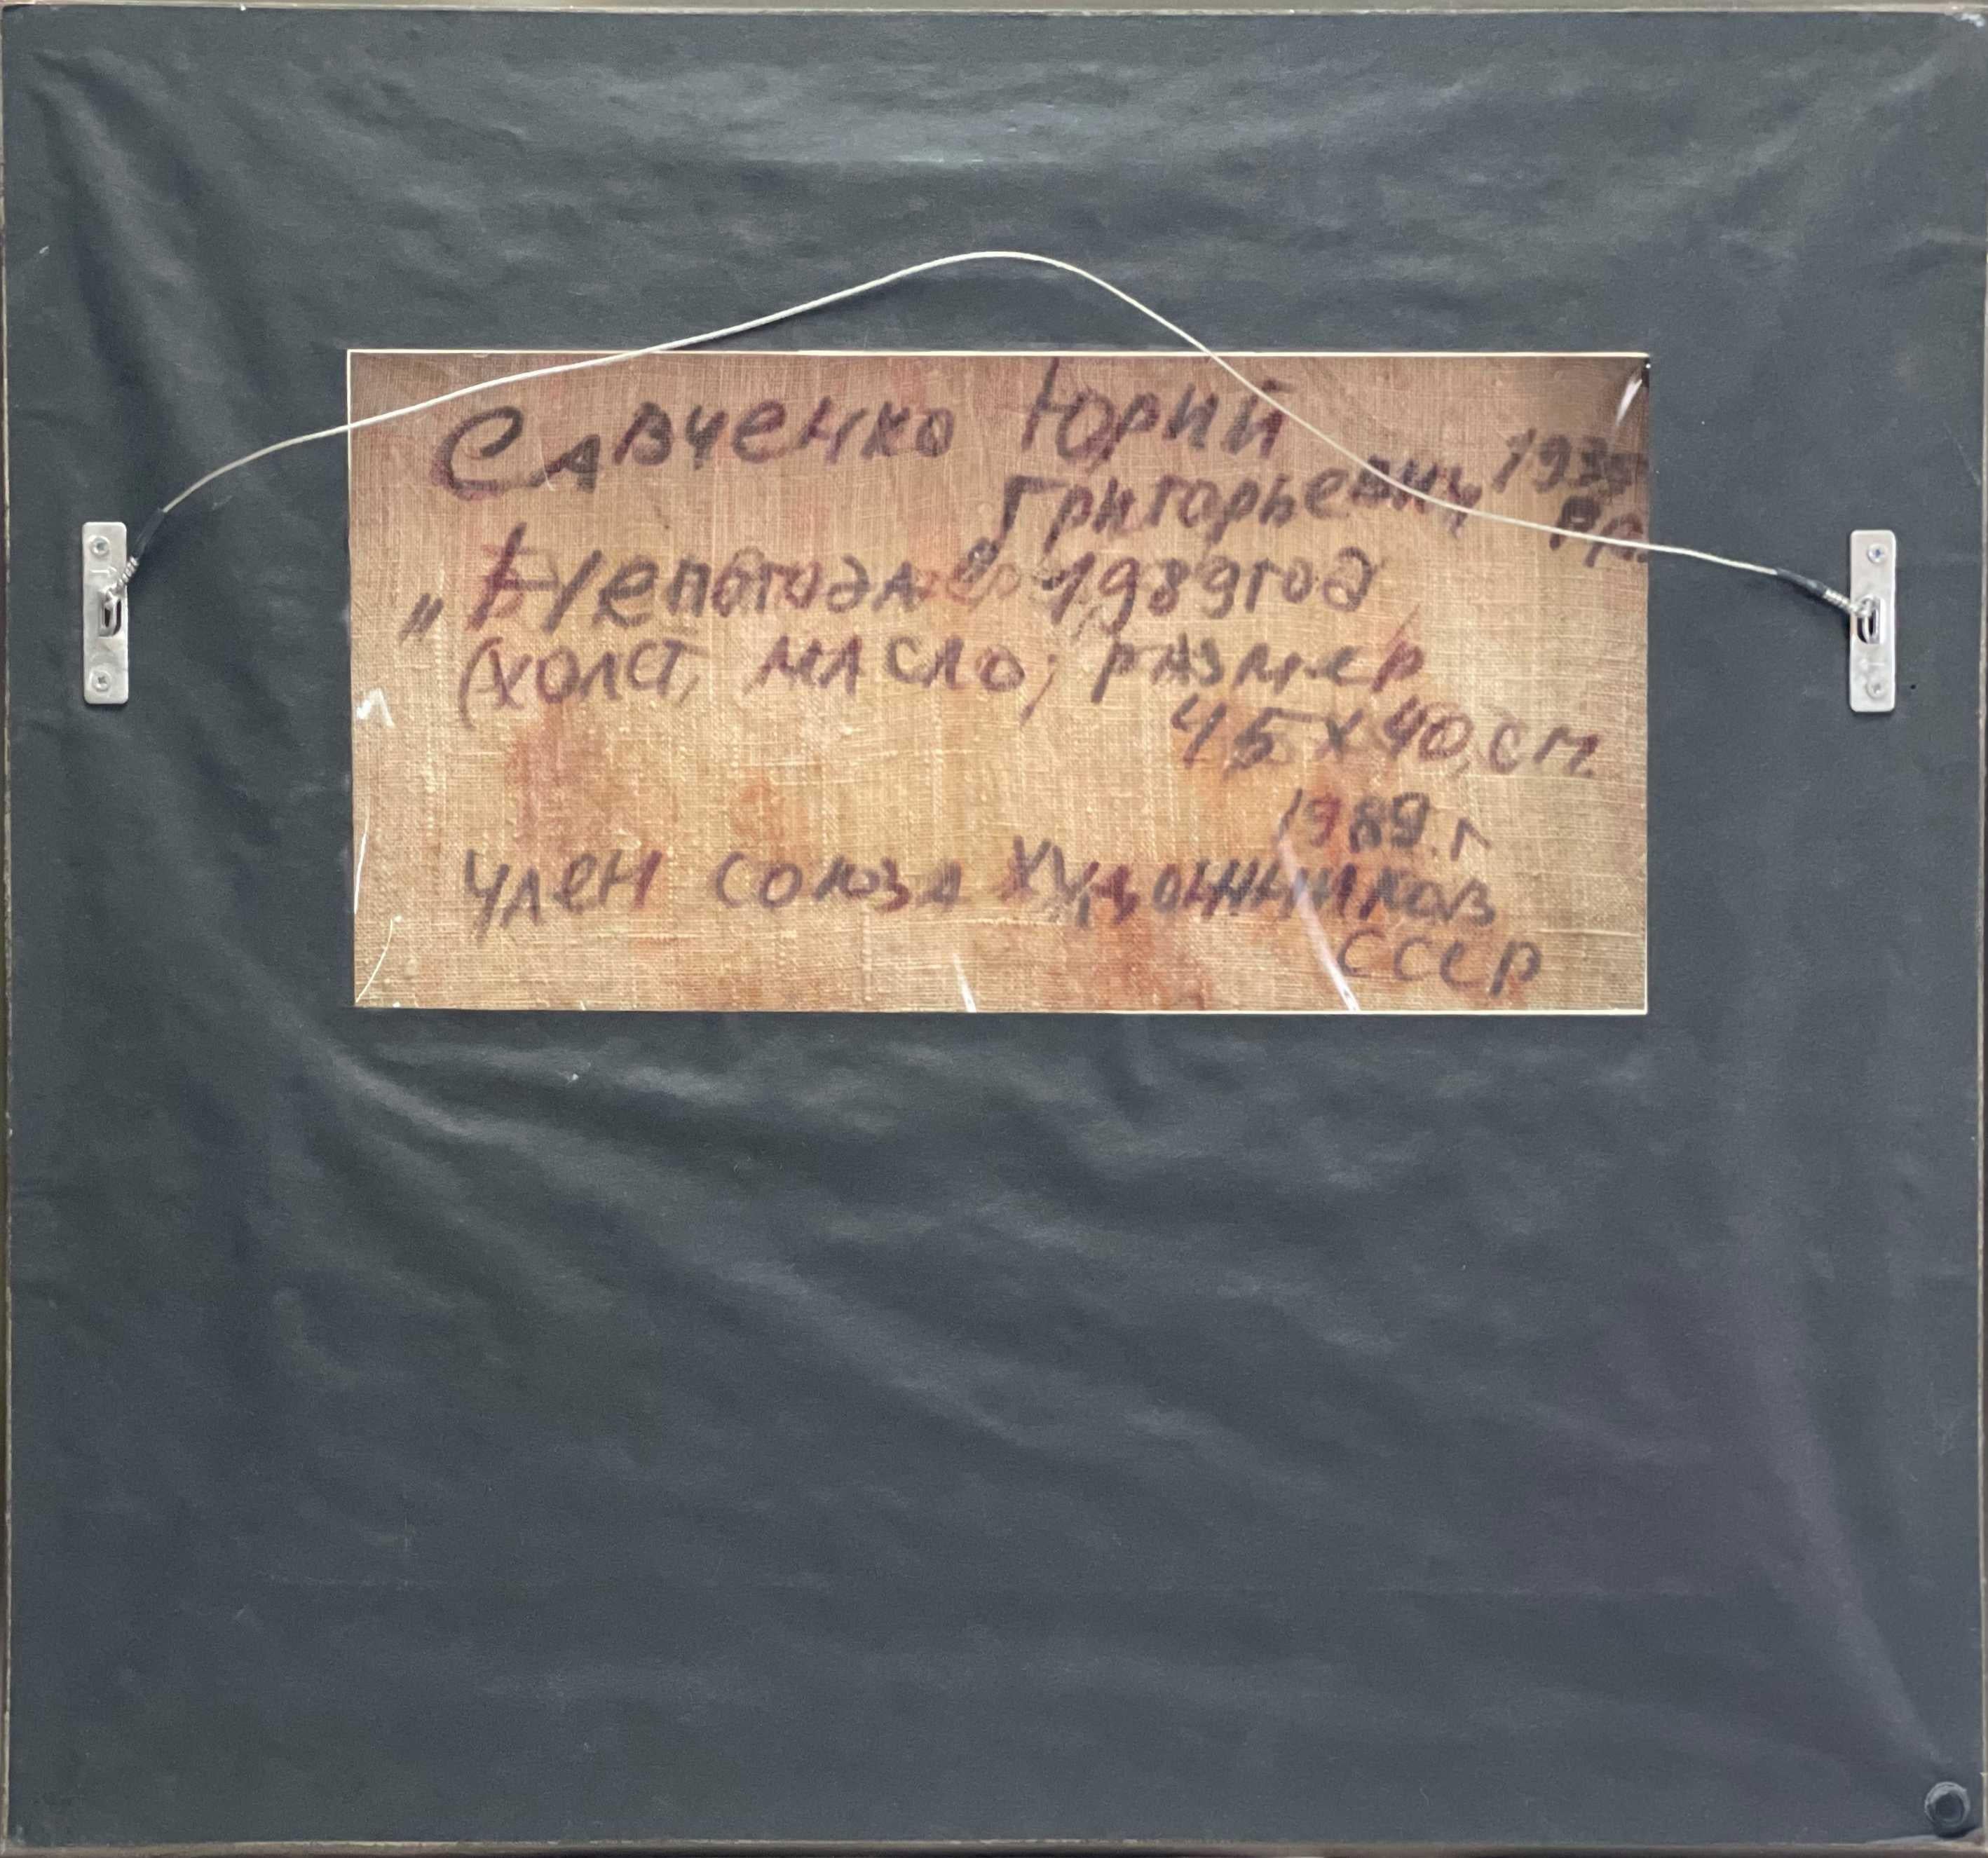 Савченко Юрий
Григорьевич, 1935
р.р.
„Непогода" 1989год
(холст, масло; размер
45 х 40, см.
1989.г
член союза художников
СССР